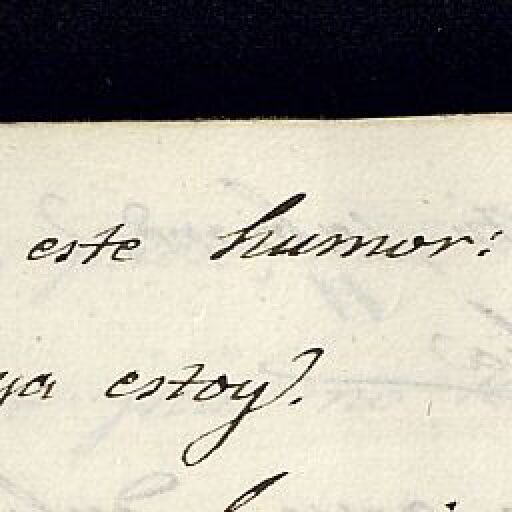 este humor:
ya estoy).